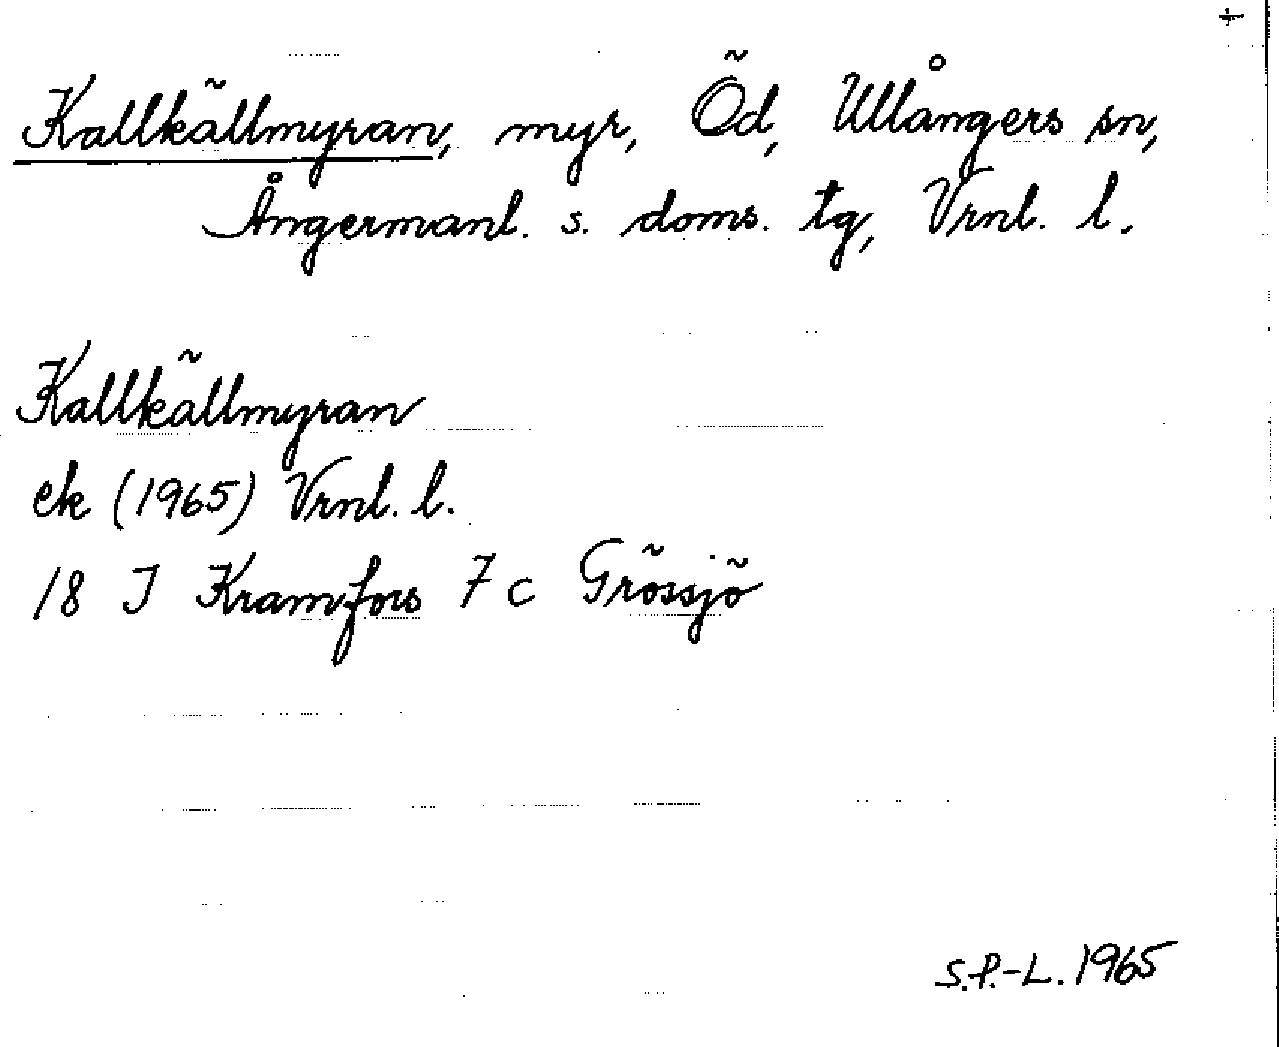 +
Kallkällmyran, myr, Öd, Ullångers sn,
Ångermanl. s. doms. tg, Vrnl. l.
Kallkällmyran
ek (1965) Vrnl. l.
18 I Kramfors 7 c Grössjö
S.P.-L. 1965